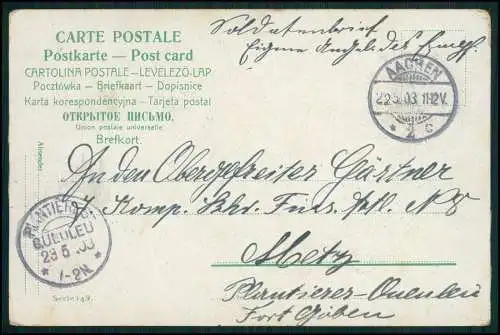 CARTE POSTALE
Postkarte — Post card
CARTOLINA POSTALE – LEVELEZŐ-LAP
Pocztówka – Briefkaart – Dopisnice
Karta korespondencyjna – Tarjeta postal
ОТКРЫТОЕ ПИСЬМО.
Union postale universelle
Brefkort.
Soldatenbrief
Eigene Angel. des Empf.
AACHEN
22.5.03. 11-12V.
* 2 c
Absender:
An den Obergefreiter Gärtner
7. Komp. Schr. Fuss. Art. N 8
Metz
Plantieres-Queuleu
Fort Göben
PLANTIERES
QUEULEU
23 5 03
* 1-2N *